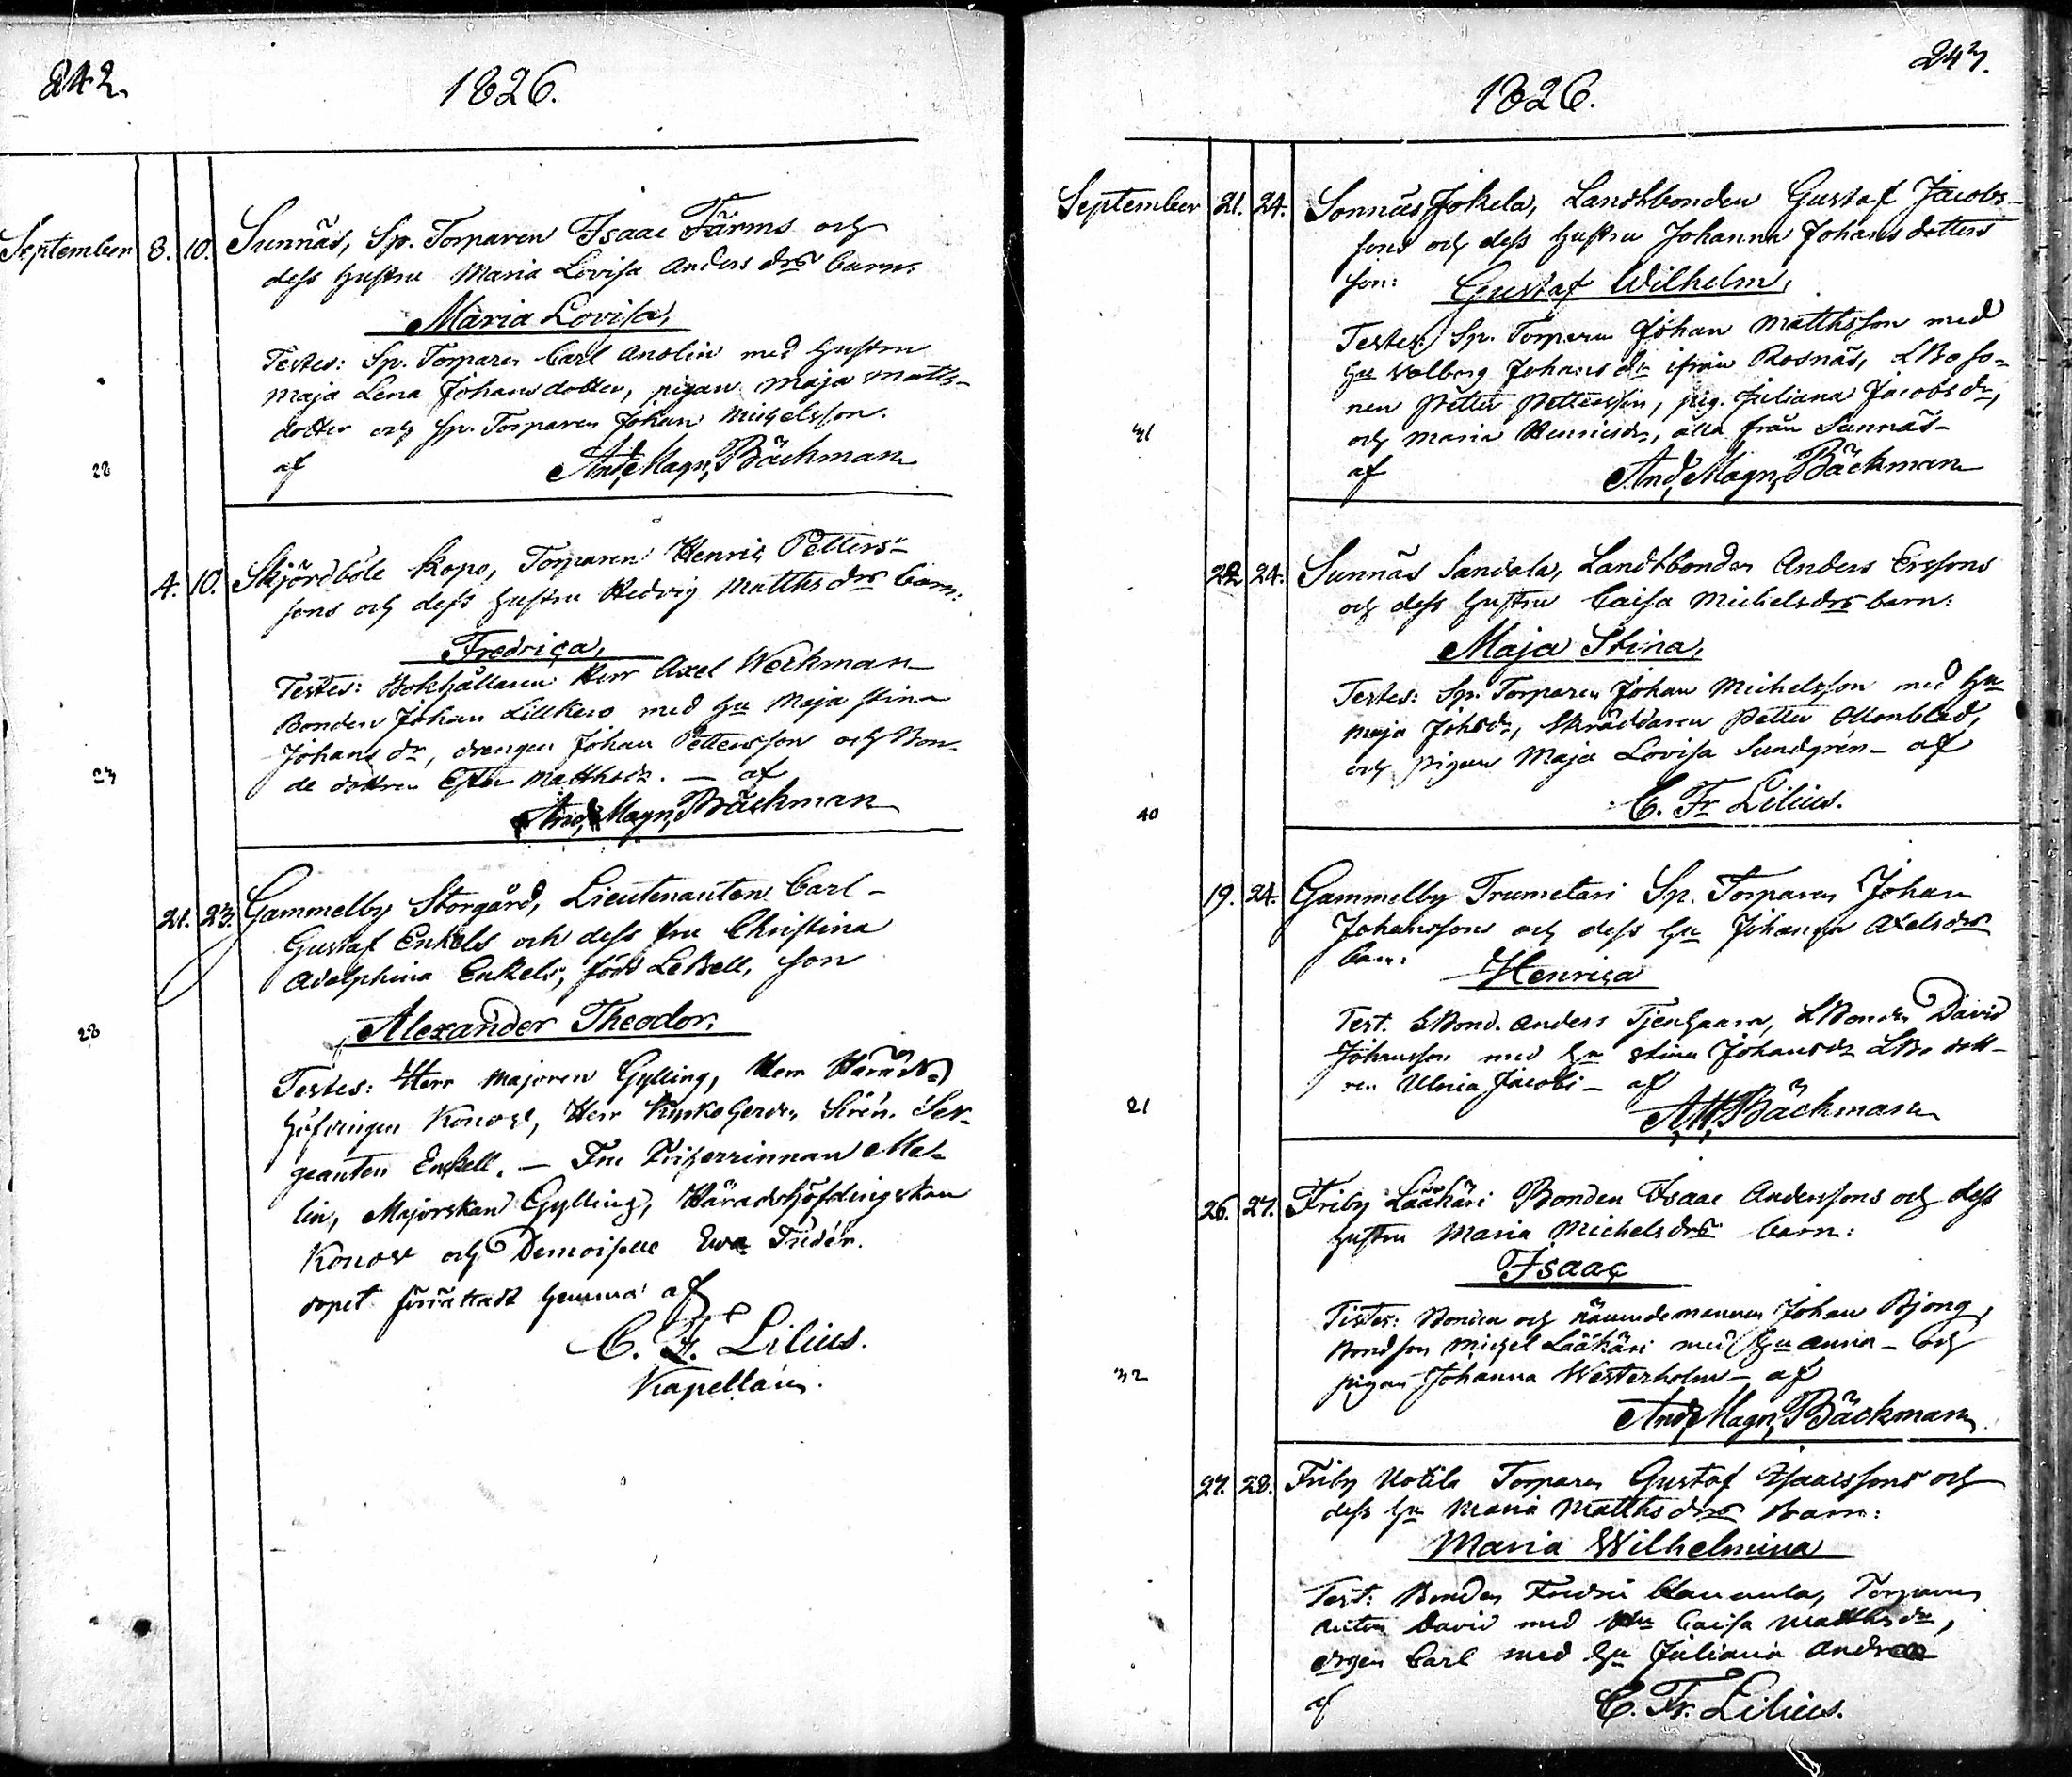 242.
1826.
September 8. 10. Sunnäs, Sp. Torparen Isaac Färms och
dess hustru Maria Lovisa Anders drs barn.
Maria Lovisa,
Testes: Sp. Torparen Carl Anolin med hustru
Maja Lena Johansdotter, pigan Maja Matts-
dotter och Sp. Torparen Johan Michelsson.
28 af And. Magn. Bäckman
4. 10. Skjördböle Kopo, Torparen Henric Petters-
sons och dess hustru Hedvig Matths drs barn:
Fredrica,
Testes: Bokhållaren Herr Axel Weckman
Bonden Johan Lillkero med hu Maja Stina
Johans dr, drengen Johan Pettersson och Bon-
23 de dottren Ester Matthsdr. — af
And. Magn. Bäckman
21. 23. Gammelby Storgård, Lieutenanten Carl
Gustaf Enkels och dess fru Christina
Adolphina Enkels, född LeBell, son
28 Alexander Theodor.
Testes: Herr Majoren Gylling, Herr Härads-
höfdingen Konow, Herr Kyrkoherden Sirén. Ser-
geanten Enkell. — Fru Friherrinnan Mel-
lin, Majorskan Gylling, Häradshöfdingskan
Konow och Demoiselle Eva Fridén.
dopet förrättadt hemma af
C. F. Lilius.
Kapellan.
243.
1826.
September 21. 24. Sonnäs Jokela, Landtbonden Gustaf Jacobs-
sons och dess hustru Johanna Johansdotters
son: Gustaf Wilhelm,
Testes: Sp. Torparen Johan Matthsson med
hu Valborg Johans dr ifrån Rosnäs, LBoso-
nen Petter Pettersson, pig. Juliana Jacobs dr,
31 och Maria Henricsdr, alla från Sunnäs-
af And. Magn. Bäckman
22. 24. Sunnäs Sandala, Landtbonden Anders Ersons
och dess hustru Caisa Michelsdrs barn:
Maja Stina,
Testes: Sp. Torparen Johan Michelsson med hu
Maja Johsdr, Skräddaren Petter Ottenblad,
och pigan Maja Lovisa Sundgrén - af
40 C. Fr Lilius.
19. 24. Gammelby Trumetari Sp. Torparen Johan
Johanssons och dess hu Johanna Axelsdrs
barn: Henrica
Test. LBond. Anders Tjenhaara, LBonden David
Johansson med hu Stina Johansdr LBo dott-
ren Ulrica Jacobs - af
21 A. M. Bäckman
26. 27. Friby Lääkäri Bonden Isaac Anderssons och dess
hustru Maria Michelsdrs barn:
Isaac
Testes: Bonden och nämndemannen Johan Bjong,
Bondson Michel Lääkäri med hu Anna - och
32 pigan Johanna Westerholm - af
And. Magn. Bäckman
27. 28. Friby Uotila Torparen Gustaf Isaacssons och
dess hu Maria Matths drs Barn:
Maria Wilhelmina
Test: Bonden Fredric Hannula, Torparen
David med Hu Caisa Matths dr,
drgen Carl med hu Juliana
af C. Fr. Lilius.